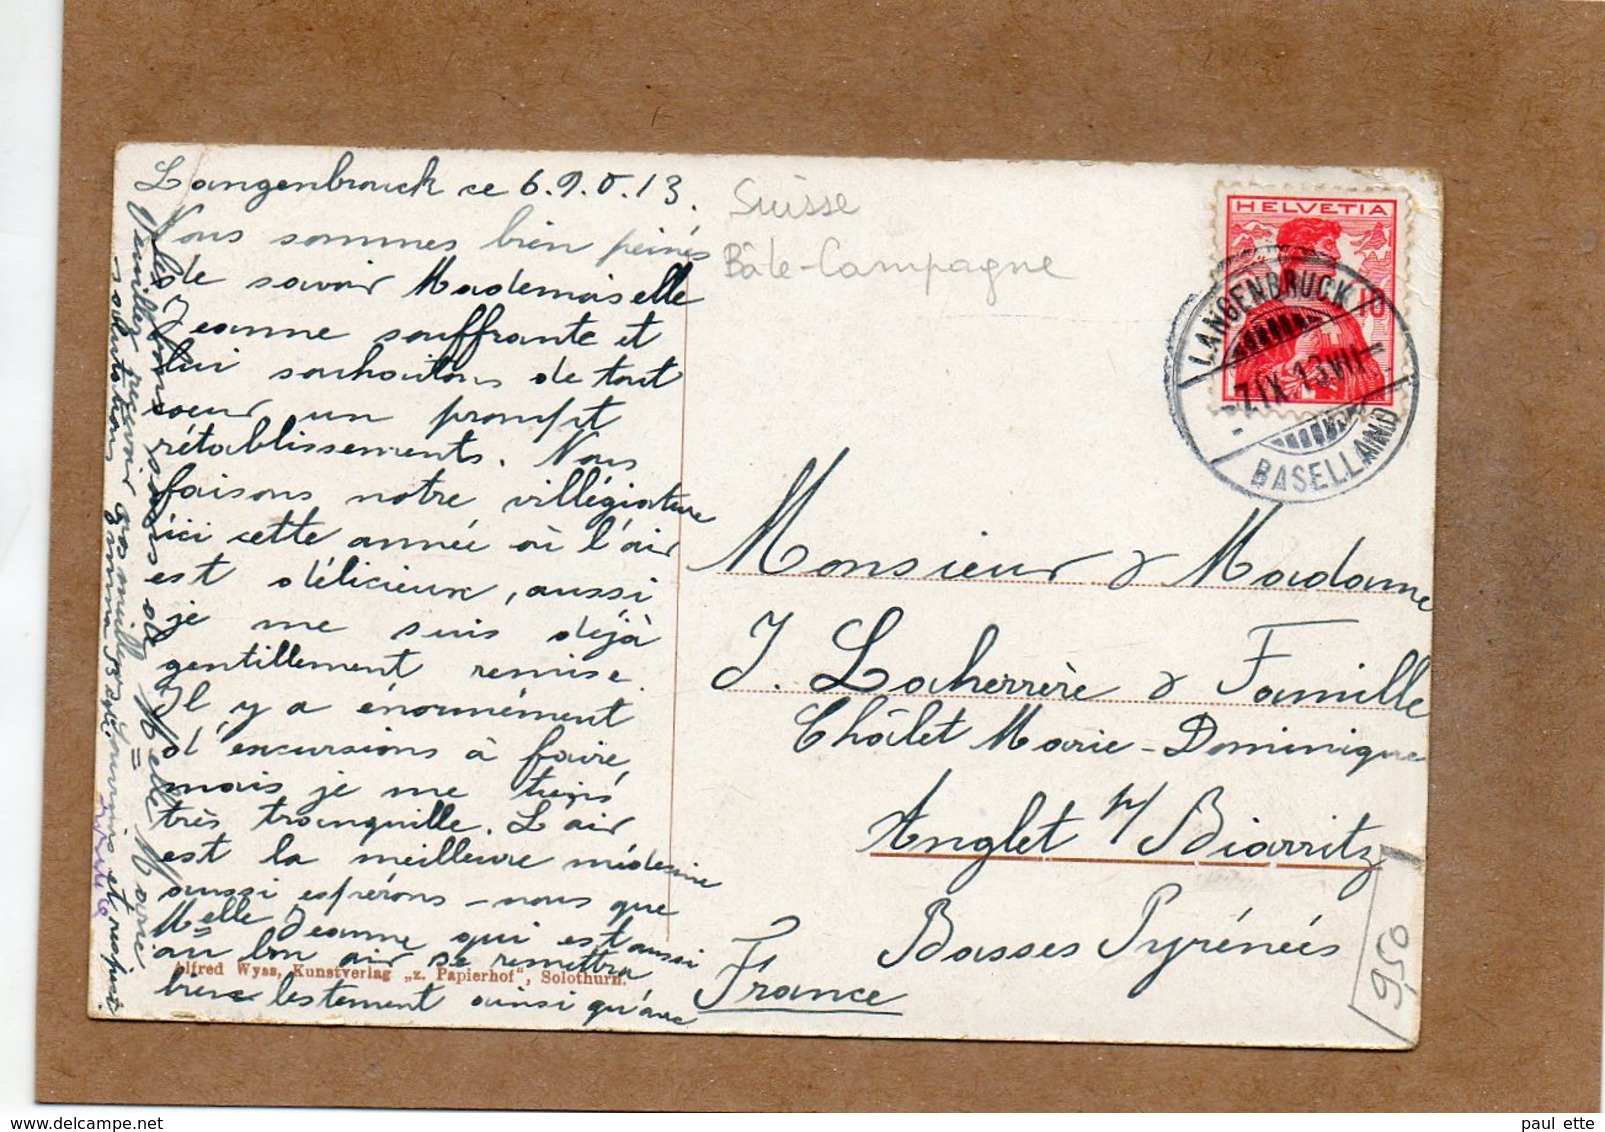 Langenbrouck ce 6.9.0.13.
Nous sommes bien peinés
de savoir Mademoiselle
Jeanne souffrante et
lui souhaitons de tout
cœur un prompt
rétablissements. Nous
faisons notre villégiature
ici cette année où l'air
est délicieux, aussi
je me suis déjà
gentillement remise.
Il y a énormément
d'excursions à faire,
mais je me tiens
très tranquille. L'air
est la meilleure médecine
aussi espérons-nous que
Melle Jeanne qui est aussi
au bon air se remettra
lestement ainsi qu'avec
les bons soins de Melle Marie
Veuillez recevoir
salutations
et respect
Alfred Wyss, Kunstverlag „z. Papierhof", Solothurn.
Suisse
Bâle-Campagne
HELVETIA
10
LANGENBRUCK
7.IX.13.VII
BASELLAND
Monsieur & Madame
J. Laherrère & Famille
Châlet Marie-Dominique
Anglet p/ Biarritz
Basses Pyrénéés
France
950
paul ette